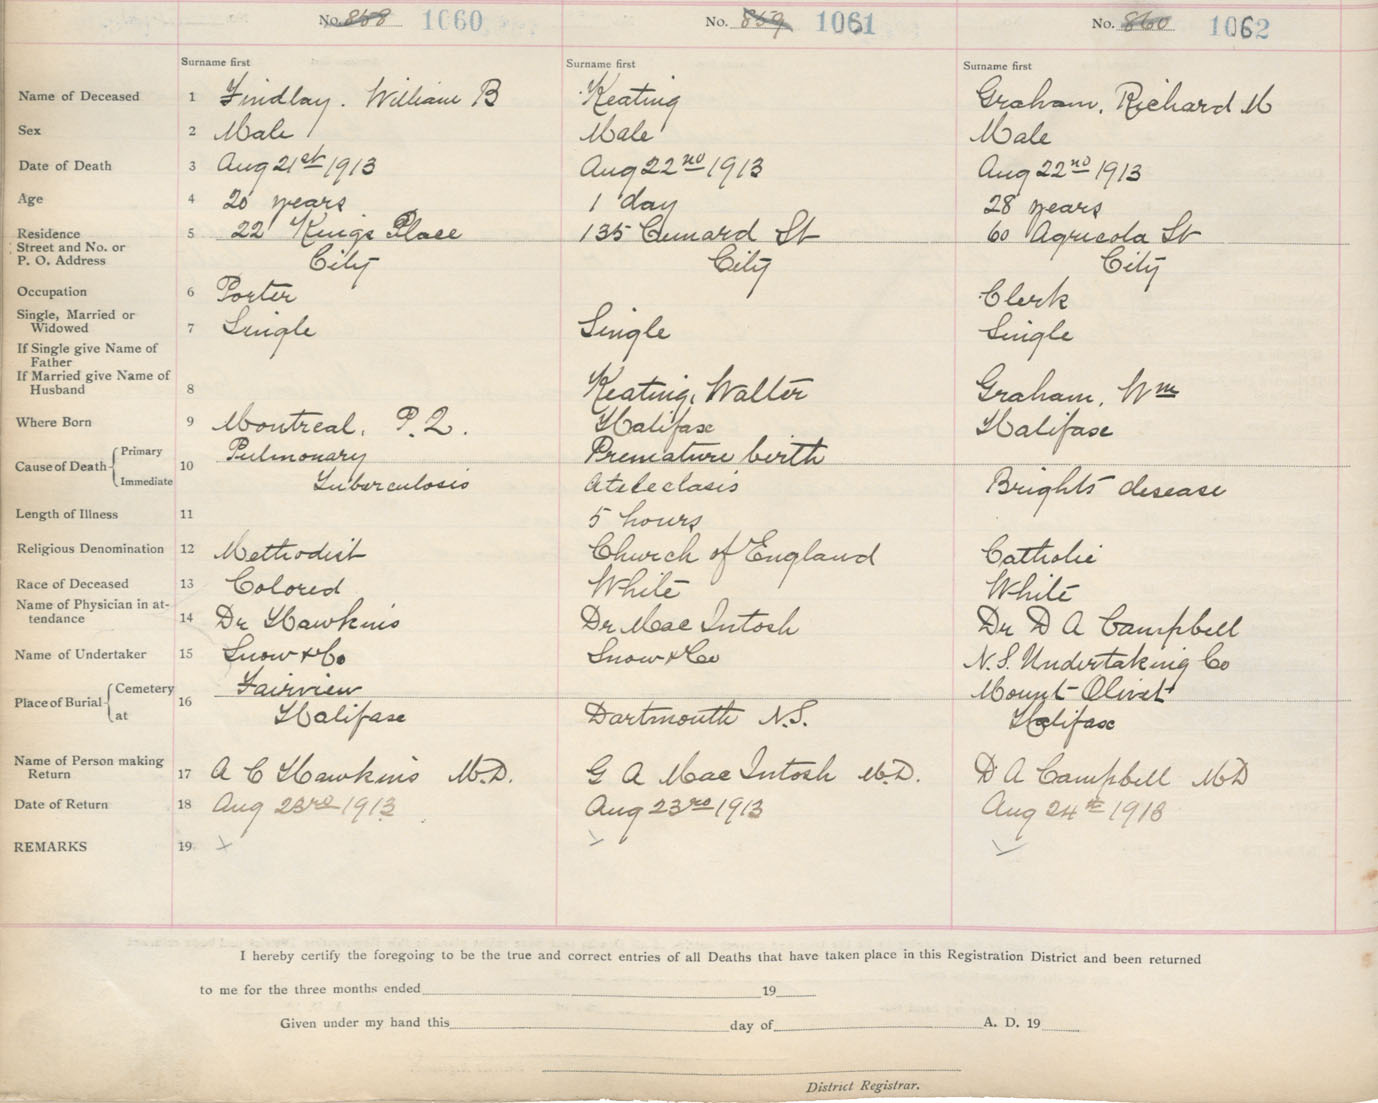 No. 858 1060 No. 859 1061 No. 860 1062
Surname first Surname first Surname first
Name of Deceased 1 Findlay. William B Keating Graham, Richard M
Sex 2 Male Male Male
Date of Death 3 Aug 21st 1913 Aug 22nd 1913 Aug 22nd 1913
Age 4 20 years 1 day 28 years
Residence 5 22 Kings Place 135 Cunard St 60 Agricola St
Street and No. or
P. O. Address City City City
Occupation 6 Porter Clerk
Single, Married or
Widowed 7 Single Single Single
If Single give Name of
Father
If Married give Name of
Husband 8 Keating, Walter Graham, Wm
Where Born 9 Montreal, P.Q. Halifax Halifax
Cause of Death Primary 10 Pulmonary Premature birth
Immediate Tuberculosis Ateleclasis Brights desease
Length of Illness 11 5 hours
Religious Denomination 12 Methodist Church of England Catholic
Race of Deceased 13 Colored White White
Name of Physician in at-
tendance 14 Dr Hawkins Dr MacIntosh Dr D A Campbell
Name of Undertaker 15 Snow & Co Snow & Co N.S. Undertaking Co
Place of Burial Cemetery 16 Fairview Mount Olivet
at Halifax Dartmouth N.S. Halifax
Name of Person making
Return 17 A C Hawkins M.D. G A MacIntosh M.D. D A Campbell MD
Date of Return 18 Aug 23rd 1913 Aug 23rd 1913 Aug 24th 1913
REMARKS 19
I hereby certify the foregoing to be the true and correct entries of all Deaths that have taken place in this Registration District and been returned
to me for the three months ended 19
Given under my hand this day of A. D. 19
District Registrar.